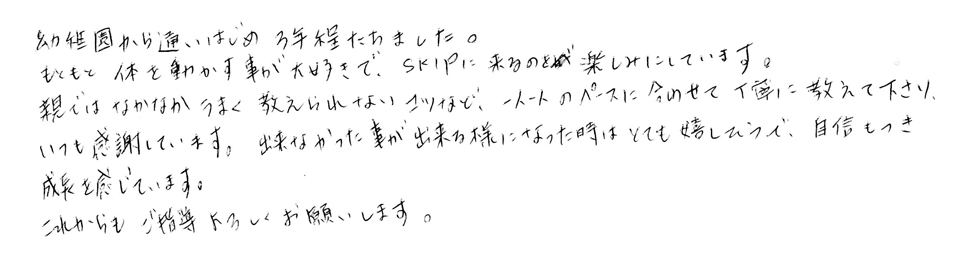 幼稚園から通いはじめ 3年程たちました。
もともと 体を動かす事が大好きで、SKIPに来るのを楽しみにしています。
親では なかなか うまく 教えられない コツなど、一人一人の ペースに 合わせて 丁寧に 教えて下さり、
いつも感謝しています。出来なかった事が出来る様になった時は とても 嬉しそうで、自信もつき
成長を感じています。
これからも ご指導 よろしく お願いします。